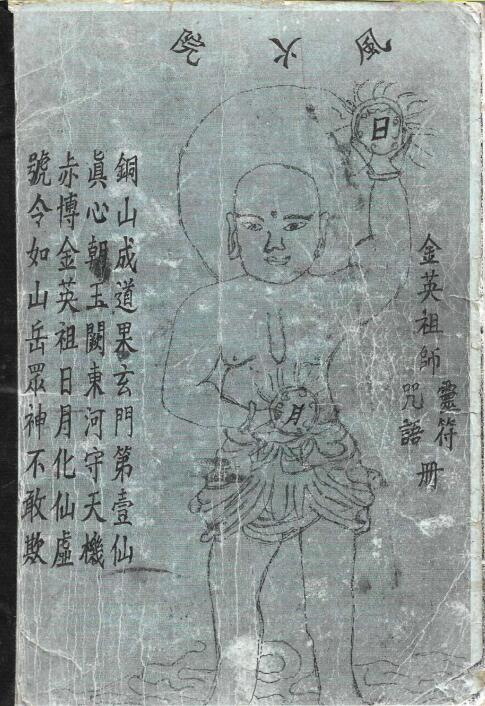 風火
日
金英祖師
靈符
咒語
册
月
銅山成道果玄門第壹仙
眞心朝玉闕東河守天機
赤博金英祖日月化仙虛
號令如山岳眾神不敢欺